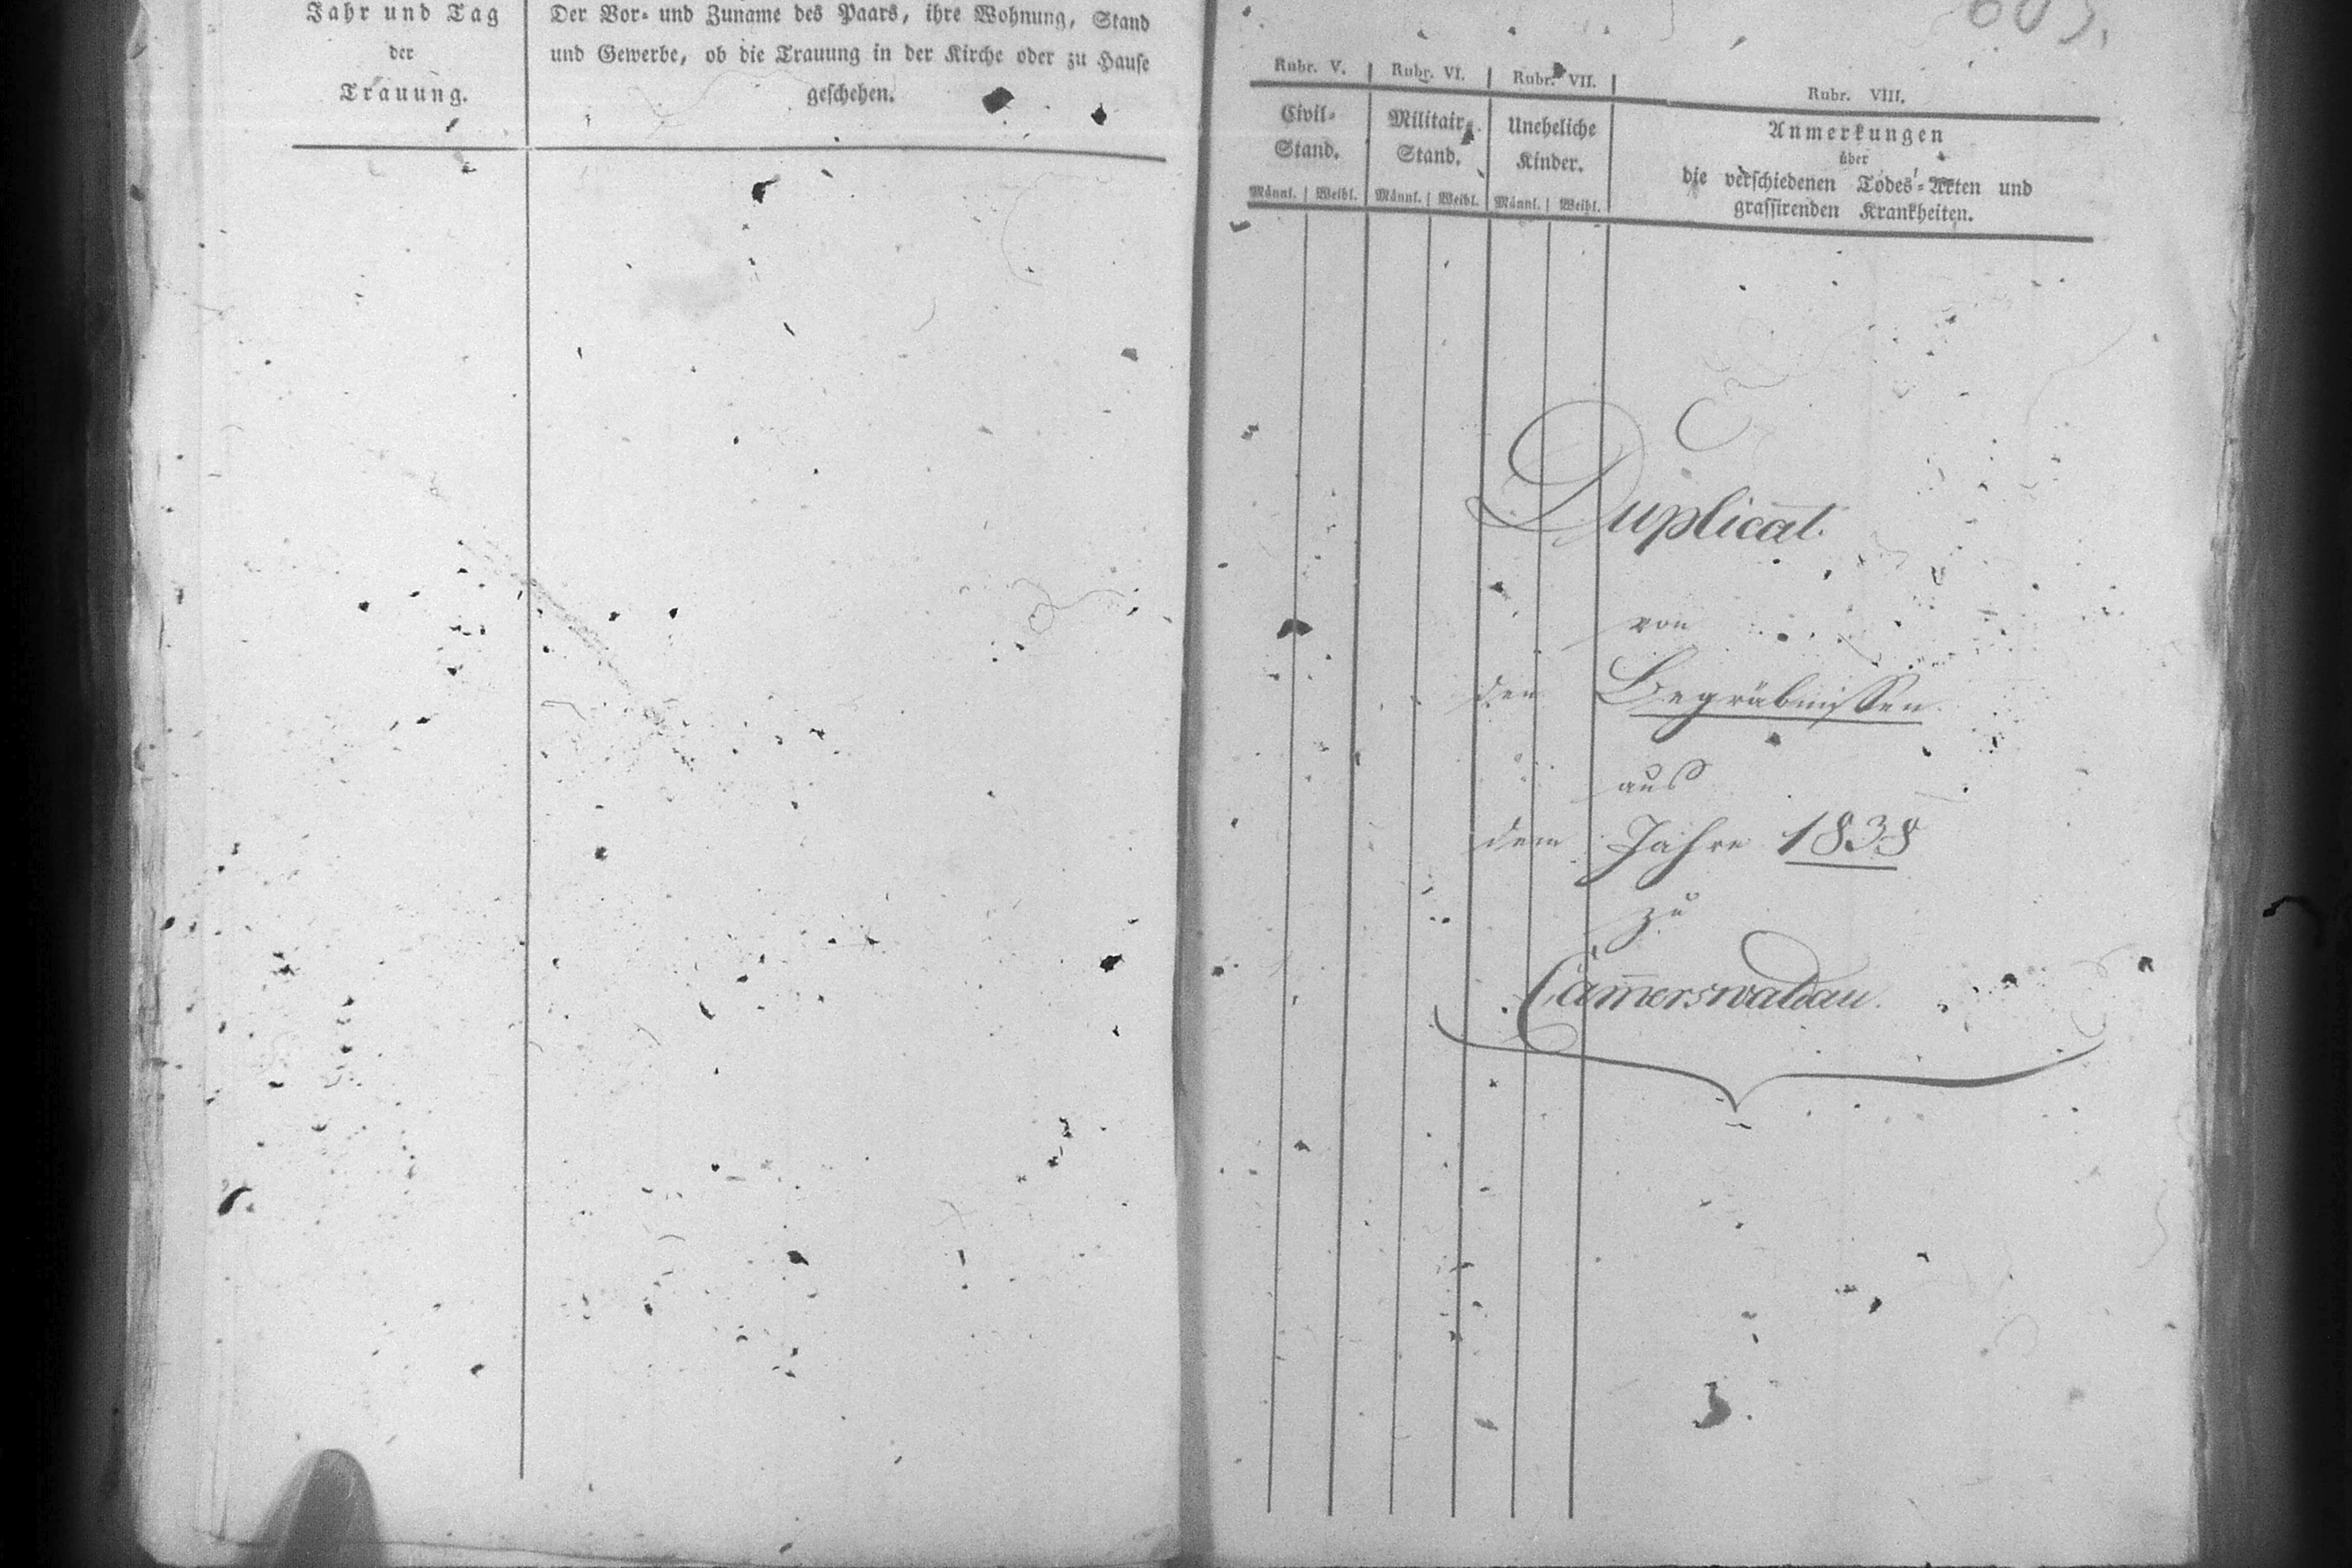 Jahr und Tag
der
Trauung.
Der Vor- und Zuname des Paars, ihre Wohnung, Stand
und Gewerbe, ob die Trauung in der Kirche oder zu Hause
geschehen.
Rubr. V. Rubr. VI. Rubr. VII. Rubr. VIII.
Civil-
Stand.
Militair-
Stand.
Uneheliche
Kinder.
Anmerkungen
über
die verschiedenen Todes-Arten und
grassirenden Krankheiten.
Männl. Weibl. Männl. Weibl. Männl. Weibl.
Duplicat.
von
den Begräbnissen
aus
dem Jahre 1838
zu
Cam̅erswaldau.